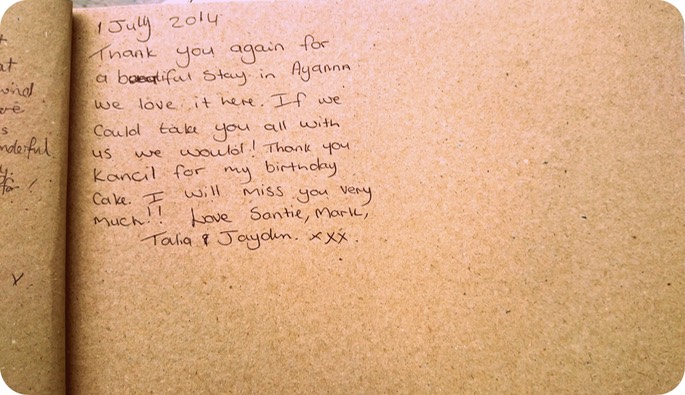 t
at
wind
s
nderful
y.
for!
x
1 July 2014
Thank you again for
a beautiful stay in Ayanna
we love it here. If we
could take you all with
us we would! Thank you
Kancil for my birthday
Cake. I will miss you very
much!! Love Santie, Mark,
Talia & Jaydin. xxx.